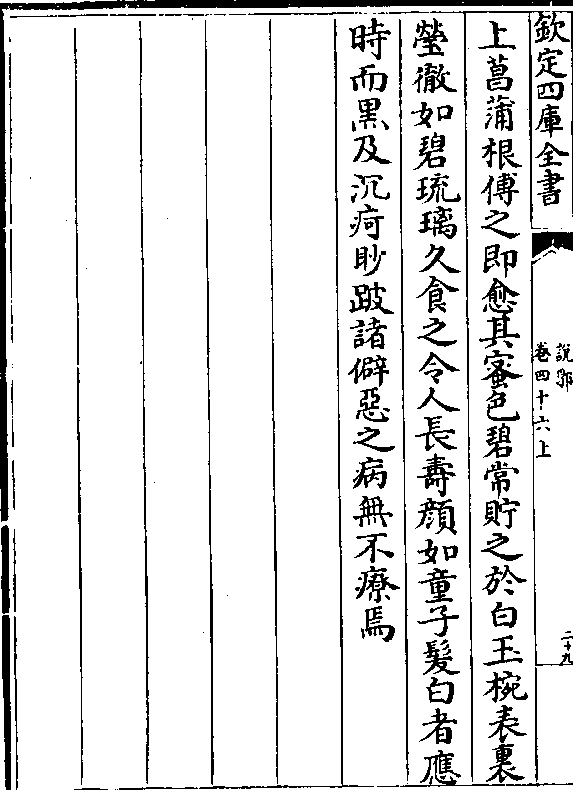 欽定四庫全書
說郛
卷四十六上
二十九
上菖蒲根傅之即愈其蜜色碧常貯之於白玉椀表裏
瑩徹如碧琉璃久食之令人長壽顔如童子髮白者應
時而黒及沉疴眇跛諸僻惡之病無不療焉